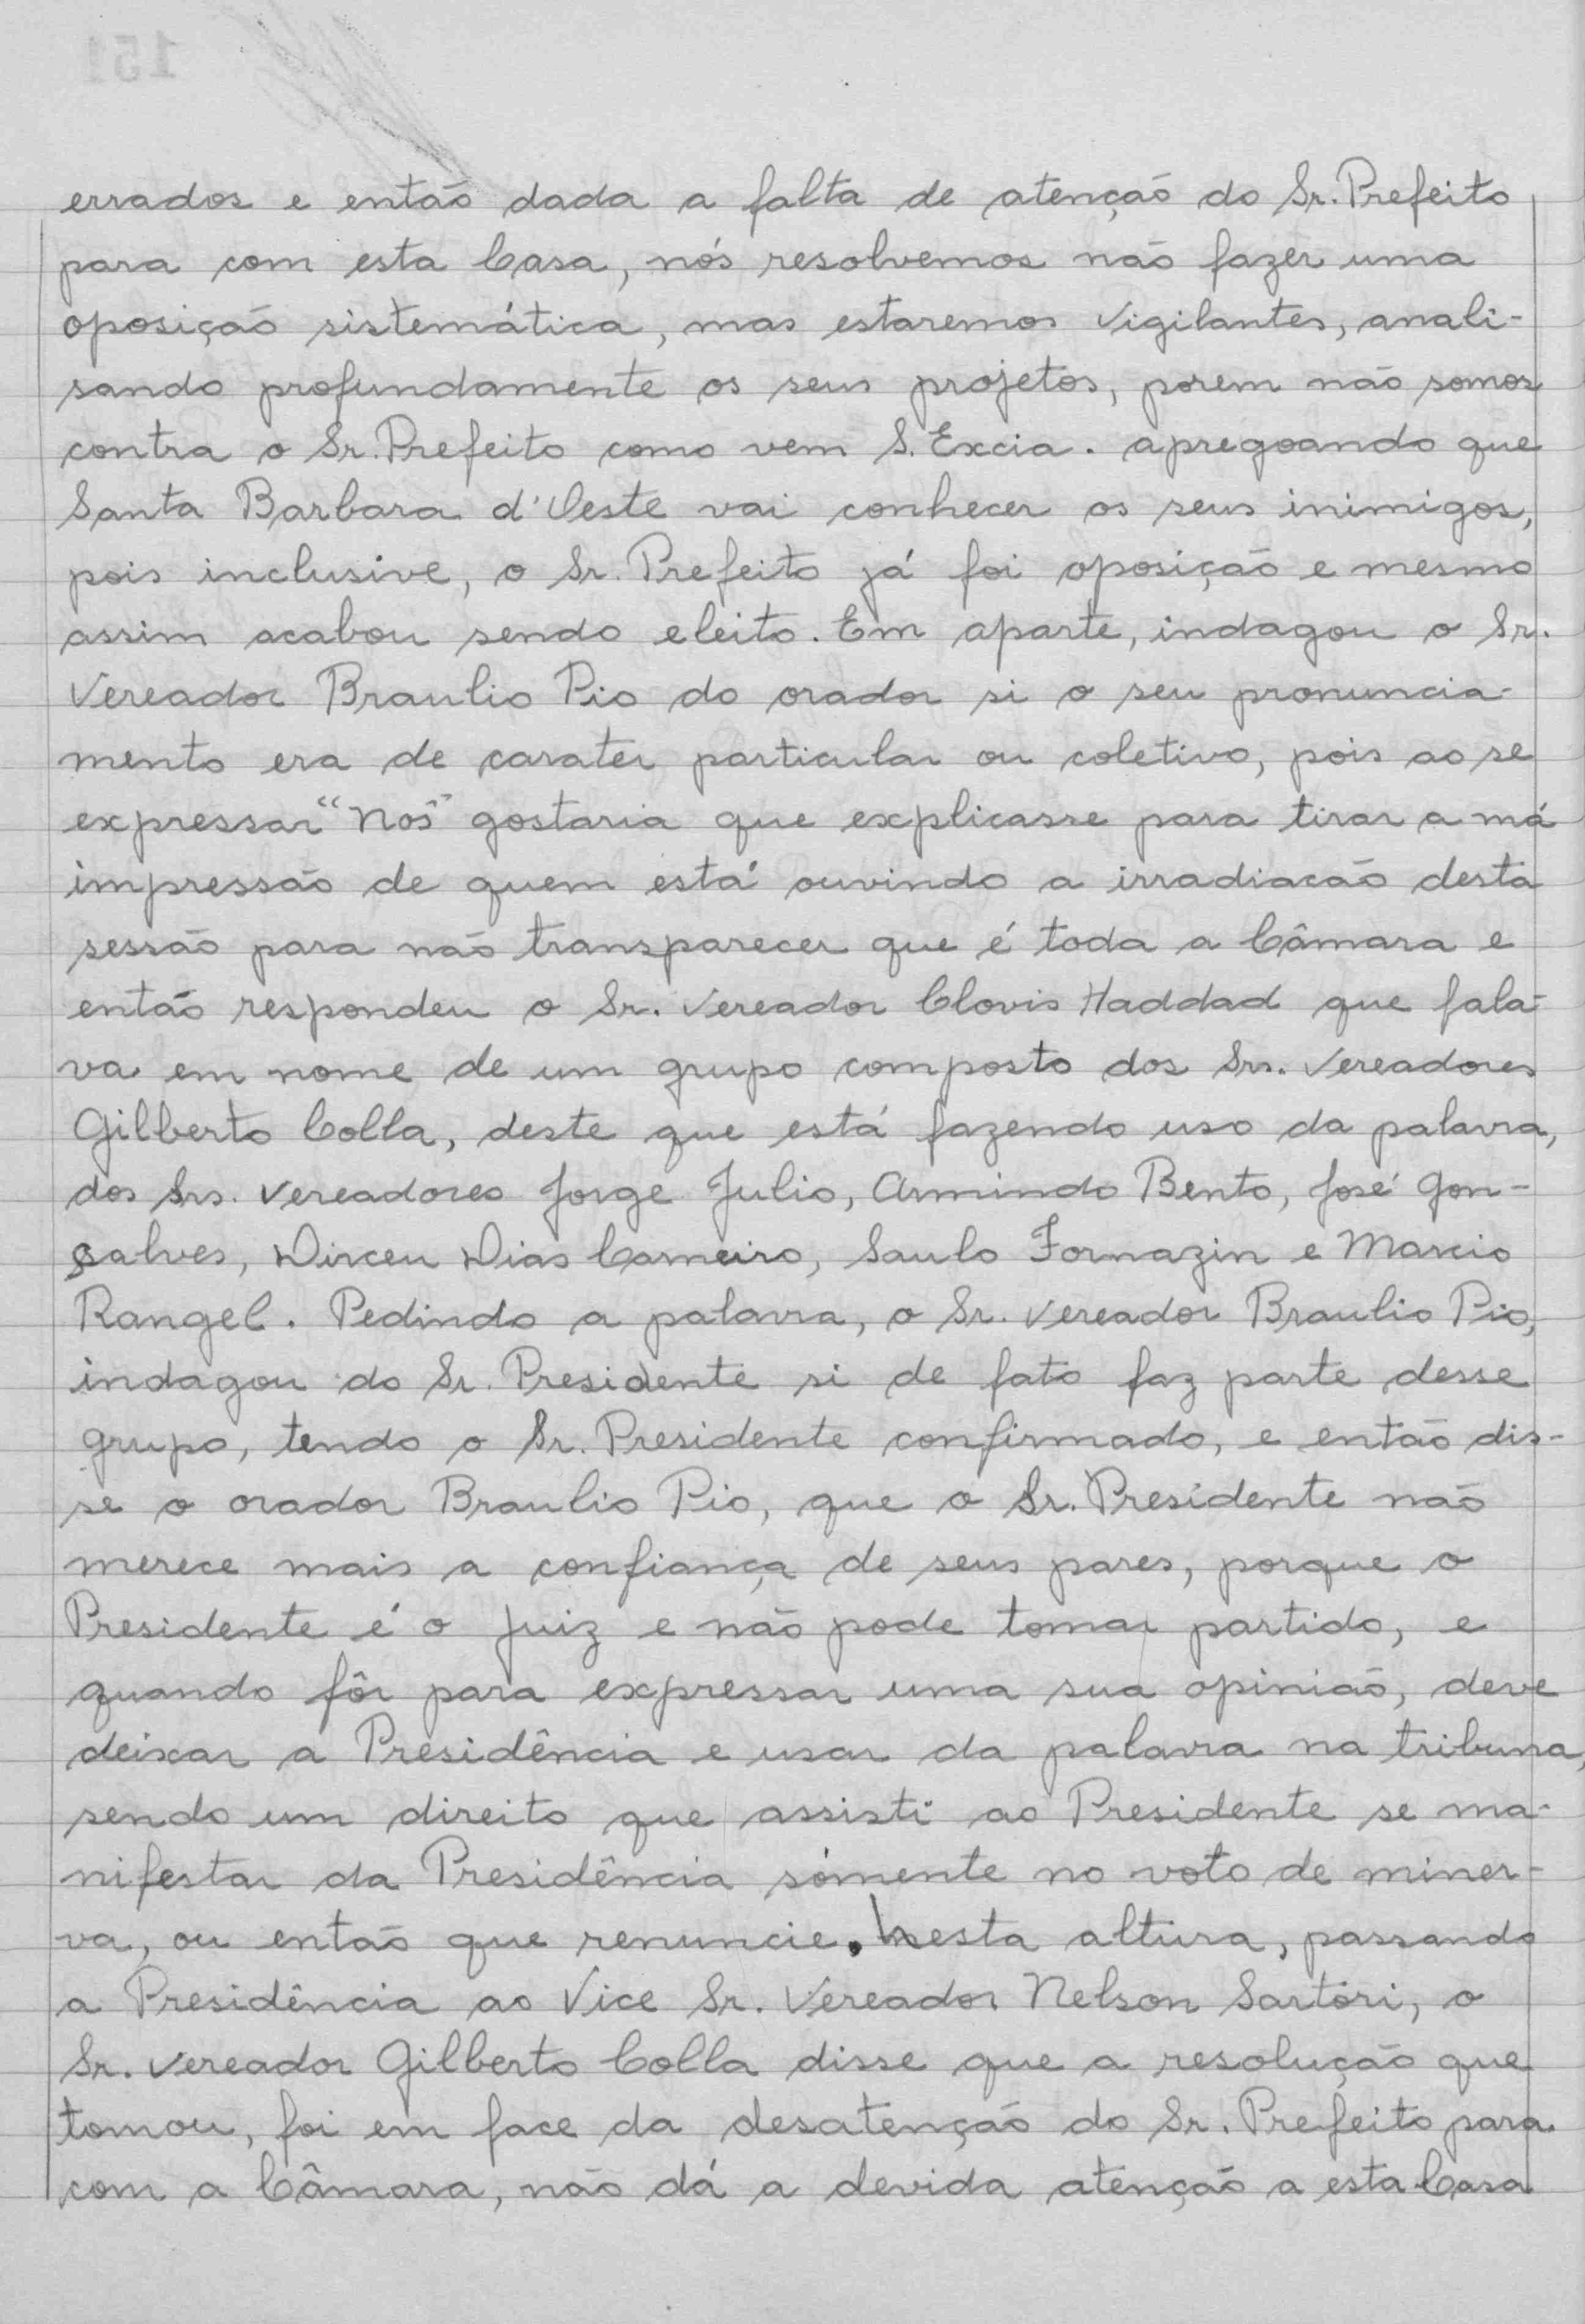 errados e então dada a falta de atenção do Sr. Prefeito
para com esta Casa, nós resolvemos não fazer uma
oposição sistemática, mas estaremos vigilantes, anali-
sando profundamente os seus projetos, porem não somos
contra o Sr. Prefeito como vem S. Excia. apregoando que
Santa Barbara d'Oeste vai conhecer os seus inimigos,
pois inclusive, o Sr. Prefeito já foi oposição e mesmo
assim acabou sendo eleito. Em aparte, indagou o Sr.
Vereador Braulio Pio do orador si o seu pronuncia-
mento era de carater particular ou coletivo, pois ao se
expressar "Nós" gostaria que explicasse para tirar a má
impressão de quem está ouvindo a irradiacão desta
sessão para não transparecer que é toda a Câmara e
então respondeu o Sr. Vereador Clovis Haddad que fala-
va em nome de um grupo composto dos Srs. Vereadores
Gilberto Colla, deste que está fazendo uso da palavra,
dos Srs. Vereadores Jorge Julio, Armindo Bento, José Gon-
çalves, Dirceu Dias Carneiro, Saulo Fornazin e Marcio
Rangel. Pedindo a palavra, o Sr. Vereador Braulio Pio,
indagou do Sr. Presidente si de fato faz parte desse
grupo, tendo o Sr. Presidente confirmado, e então dis-
se o orador Braulio Pio, que o Sr. Presidente não
merece mais a confiança de seus pares, porque o
Presidente é o Juiz e não pode tomar partido, e
quando fôr para expressar uma sua opinião, deve
deixar a Presidência e usar da palavra na tribuna,
sendo um direito que assisti ao Presidente se ma-
nifestar da Presidência sómente no voto de miner-
va, ou então que renuncie. Nesta altura, passando
a Presidência ao Vice Sr. Vereador Nelson Sartori, o
Sr. Vereador Gilberto Colla disse que a resolução que
tomou, foi em face da desatenção do Sr. Prefeito para
com a Câmara, não dá a devida atenção a esta Casa